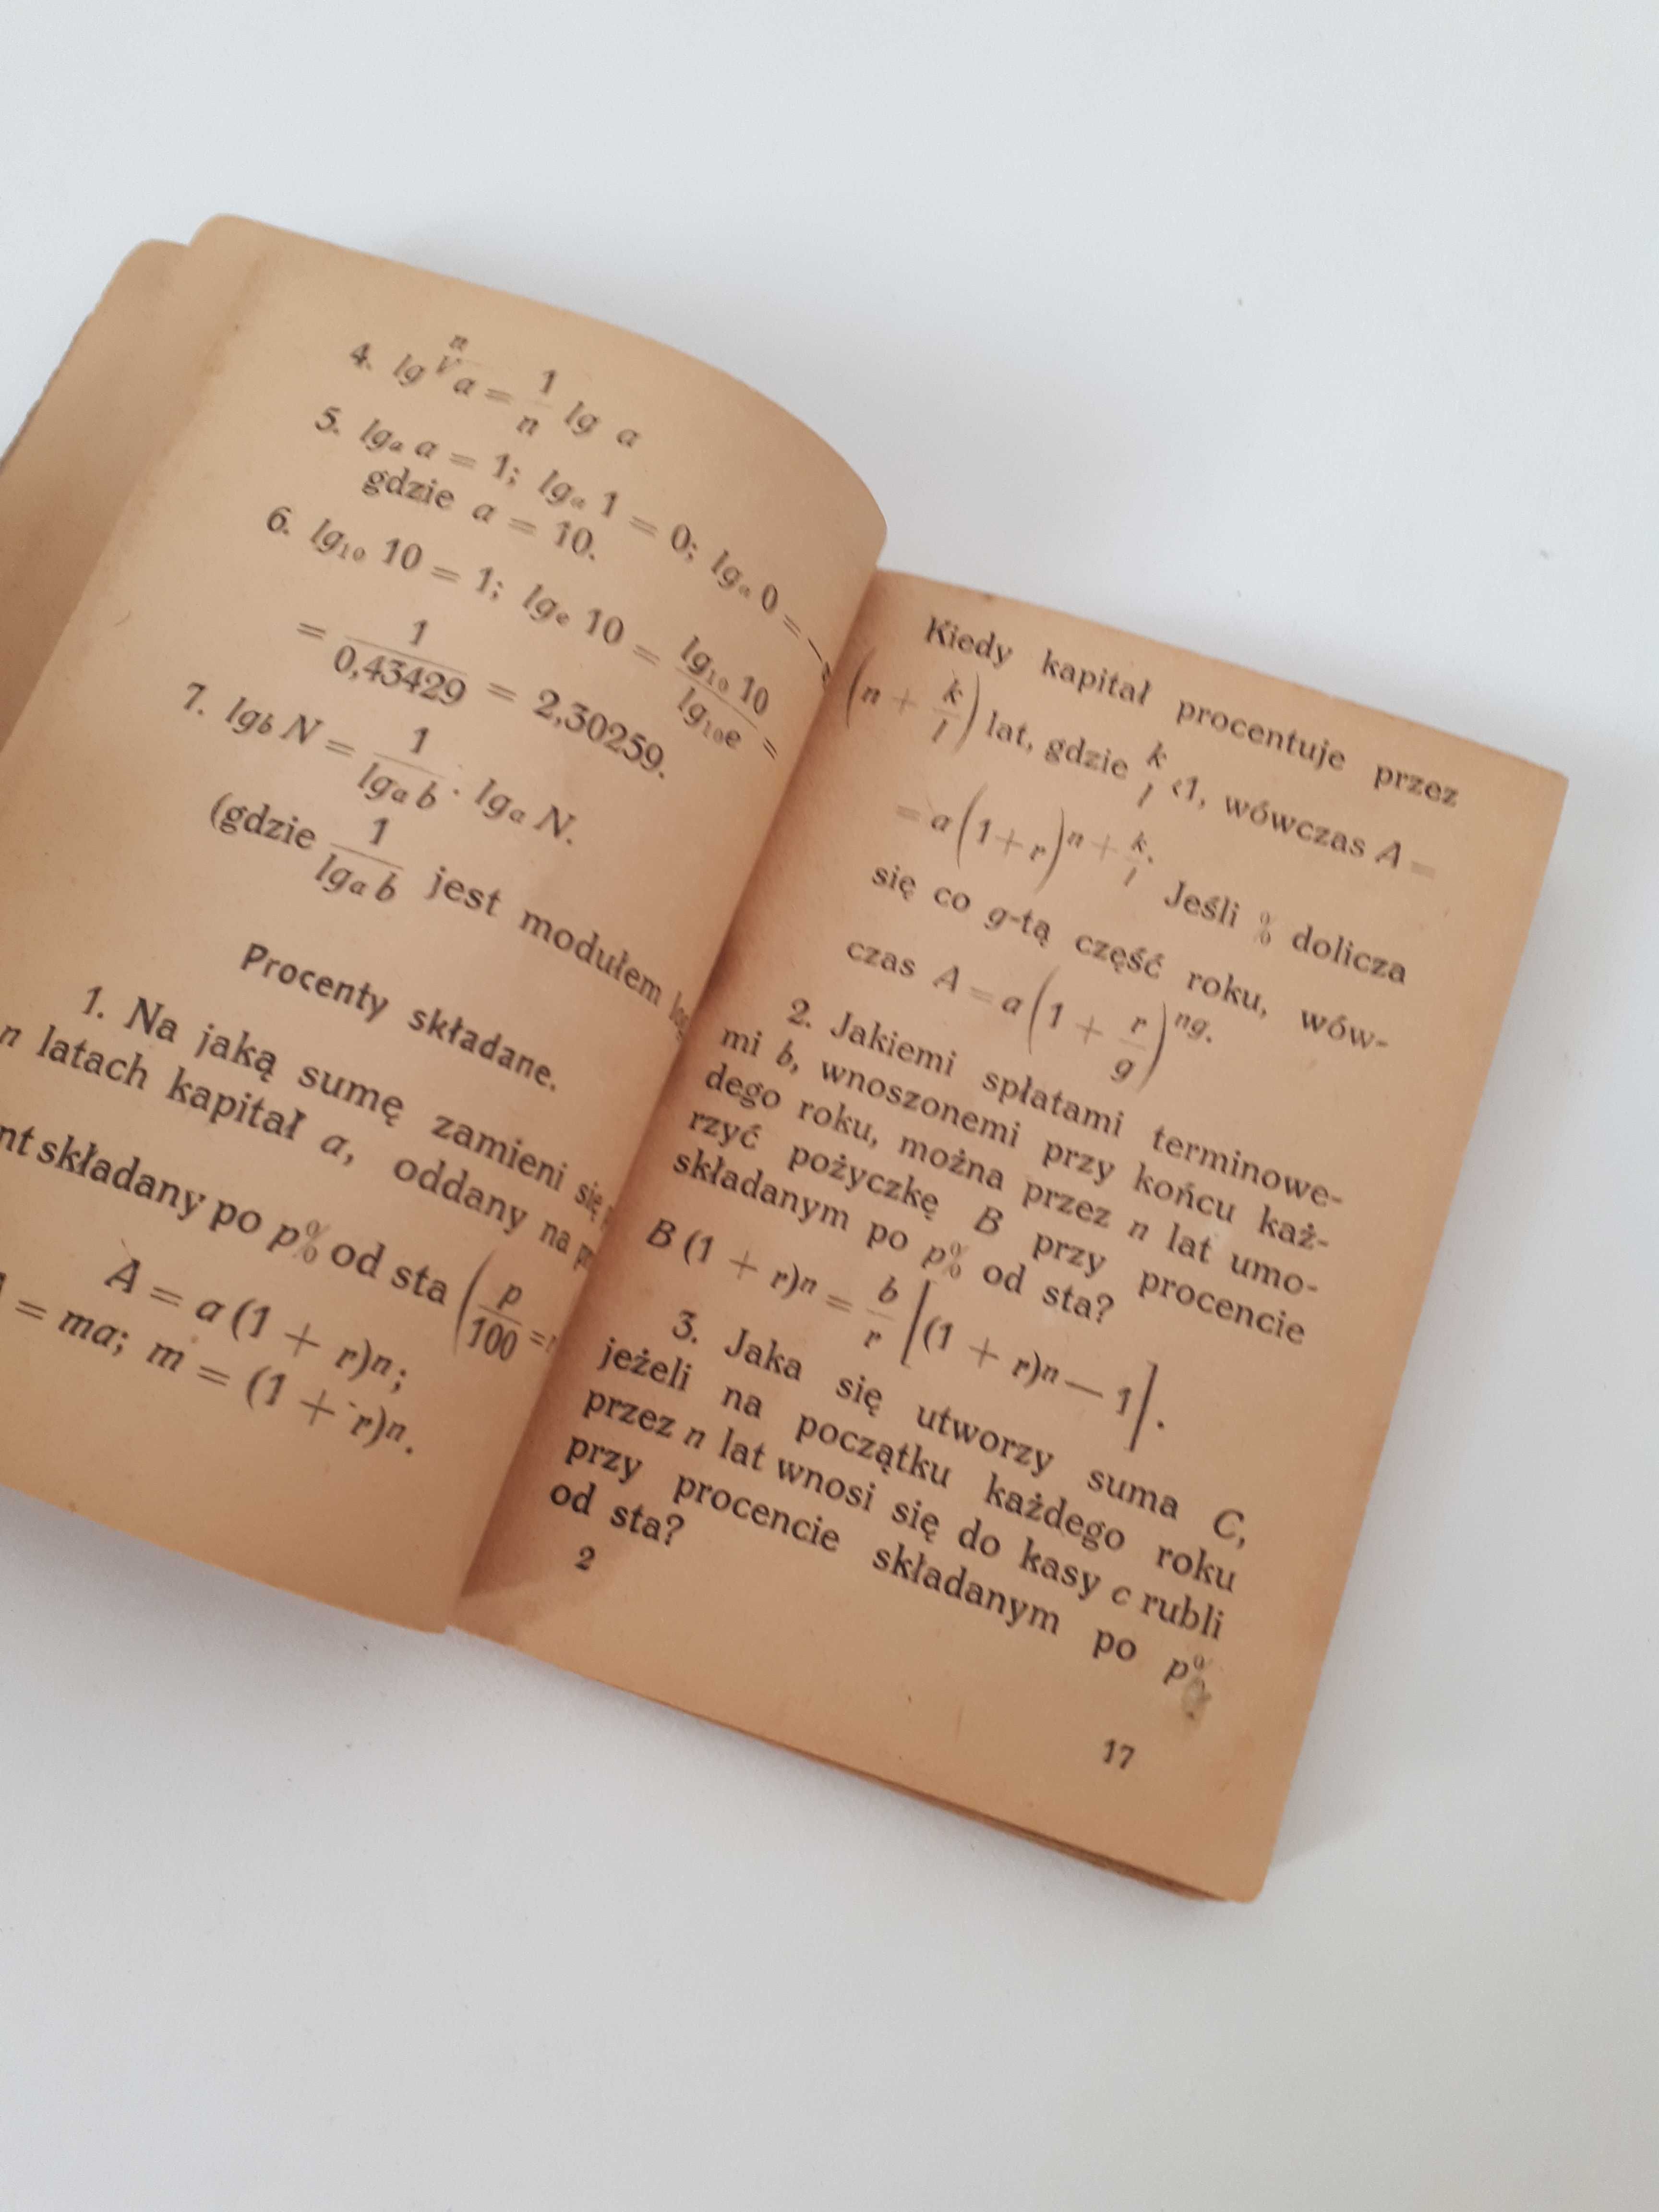 4. lg ⁿ√a = 1/n lg a
5. lgₐ a = 1; lgₐ 1 = 0; lgₐ 0 = —
gdzie a = 10.
6. lg₁₀ 10 = 1; lgₑ 10 = lg₁₀ 10 / lg₁₀e =
= 1 / 0,43429 = 2,30259.
7. lgb N = 1 / lgₐ b · lgₐ N.
(gdzie 1 / lgₐ b jest modułem
Procenty składane.
1. Na jaką sumę zamieni się
n latach kapitał a, oddany na
nt składany po p% od sta (p/100 =
A = a (1 + r)ⁿ;
= ma; m = (1 + r)ⁿ.
Kiedy kapitał procentuje przez
(n + k/l) lat, gdzie k/l <1, wówczas A =
= a (1+r)ⁿ⁺ᵏ/ˡ. Jeśli % dolicza
się co g-tą część roku, wów-
czas A = a (1 + r/g)ⁿᵍ.
2. Jakiemi spłatami terminowe-
mi b, wnoszonemi przy końcu każ-
dego roku, można przez n lat umo-
rzyć pożyczkę B przy procencie
składanym po p% od sta?
B (1 + r)ⁿ = b/r [(1 + r)ⁿ — 1].
3. Jaka się utworzy suma C,
jeżeli na początku każdego roku
przez n lat wnosi się do kasy c rubli
przy procencie składanym po p%
od sta?
2
17